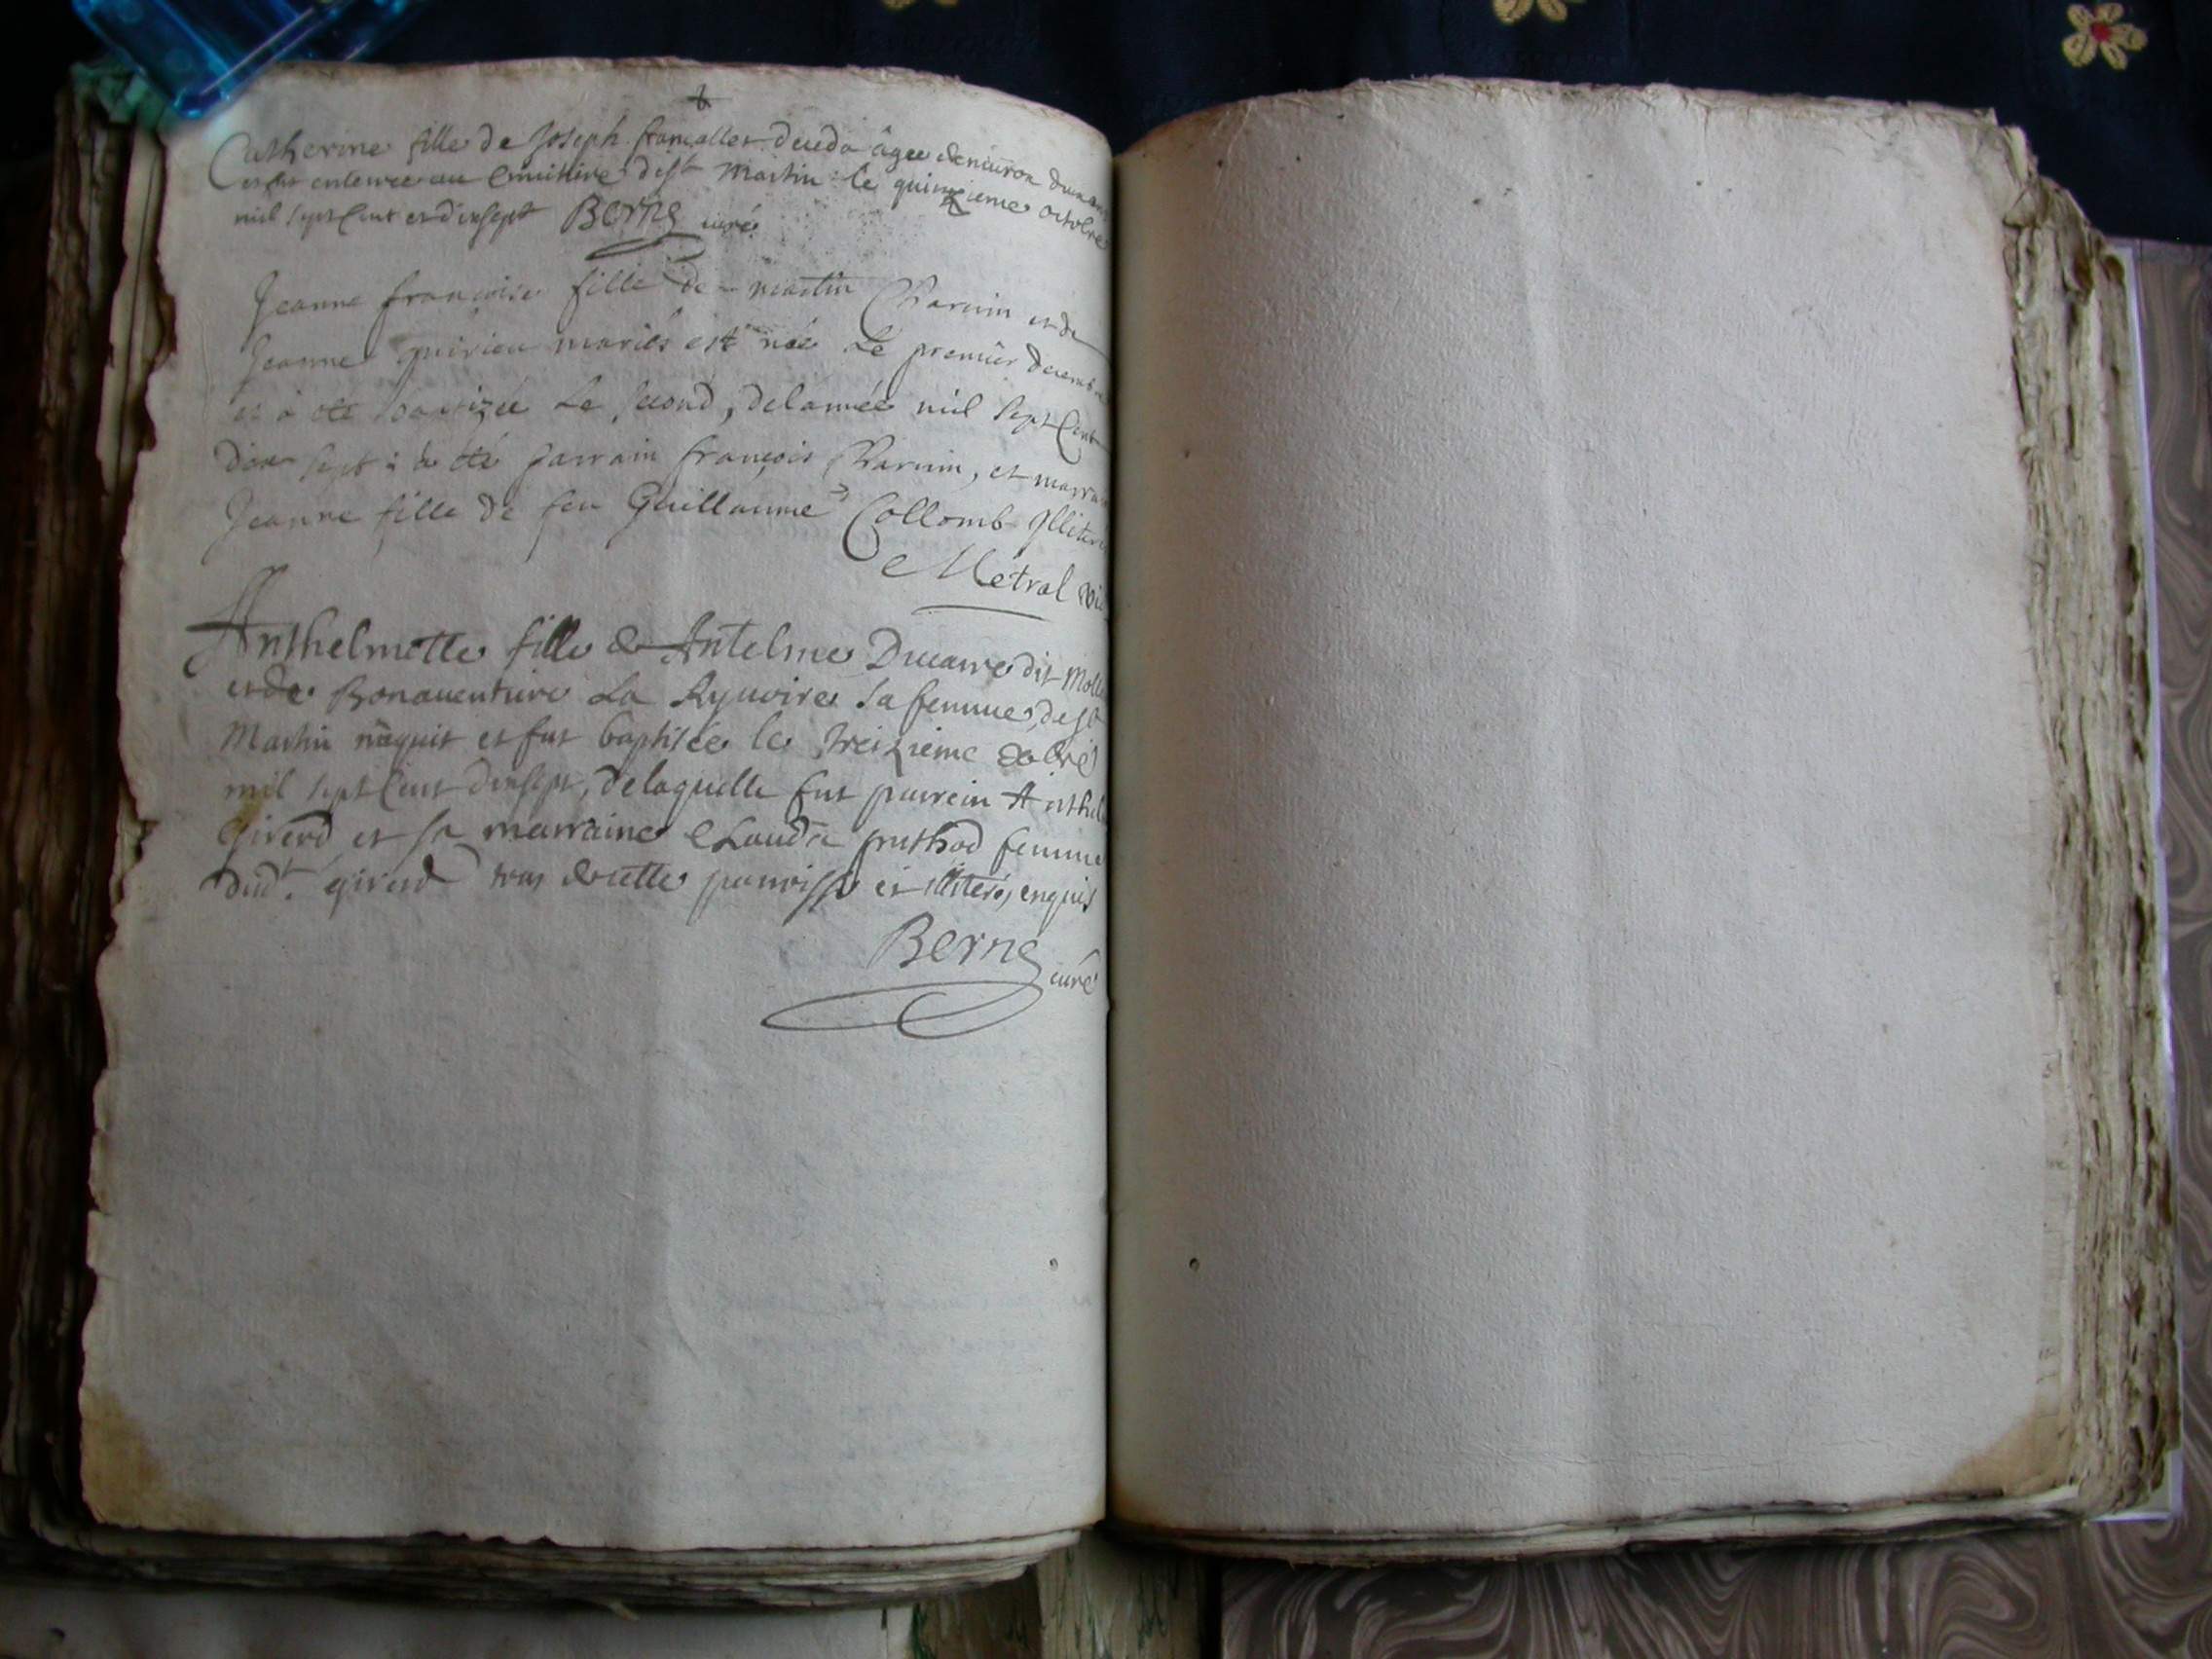 Catherine fille de Joseph françallet deceda âgee denuiron dun an
et fut enterree au Cimitiere de st Martin le quinzieme octobre
mil sept Cent et dixsept Berne curé
Jeanne françoise fille de martin Charuin et de
Jeanne quirieu mariés est née Le premier decemb
et à été baptizée Le second, de lannée mil sept Cent
dix sept : a été parrain françois Charuin, et marra
Jeanne fille de feu Guillaume Collomb Illiter
Métral vi
Anthelmette fille de Antelme Ducarre dit Moll
et de Bonauenture La Ryuoire sa femme, de st
Martin nâquit et fut baptisée le treizieme
mil sept Cent dixsept, de laquelle fut parrein Anthel
girerd et sa marraine Claudâ pruthod femme
dudt. girerd tous de cette parroisse et illiterés enquis
Berne curé